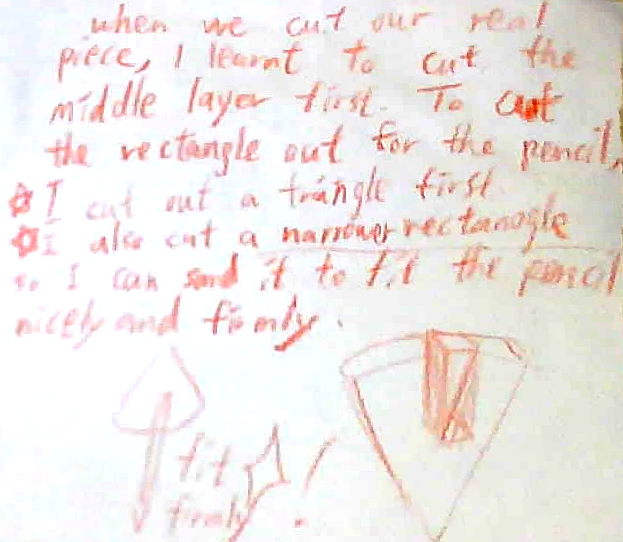 when we cut our real
piece, I learnt to cut the
middle layer first. To cut
the rectangle out for the pencil,
I cut out a triangle first
I also cut a narrower rectangle
so I can sand it to fit the pencil
nicely and firmly.
fit
firmly